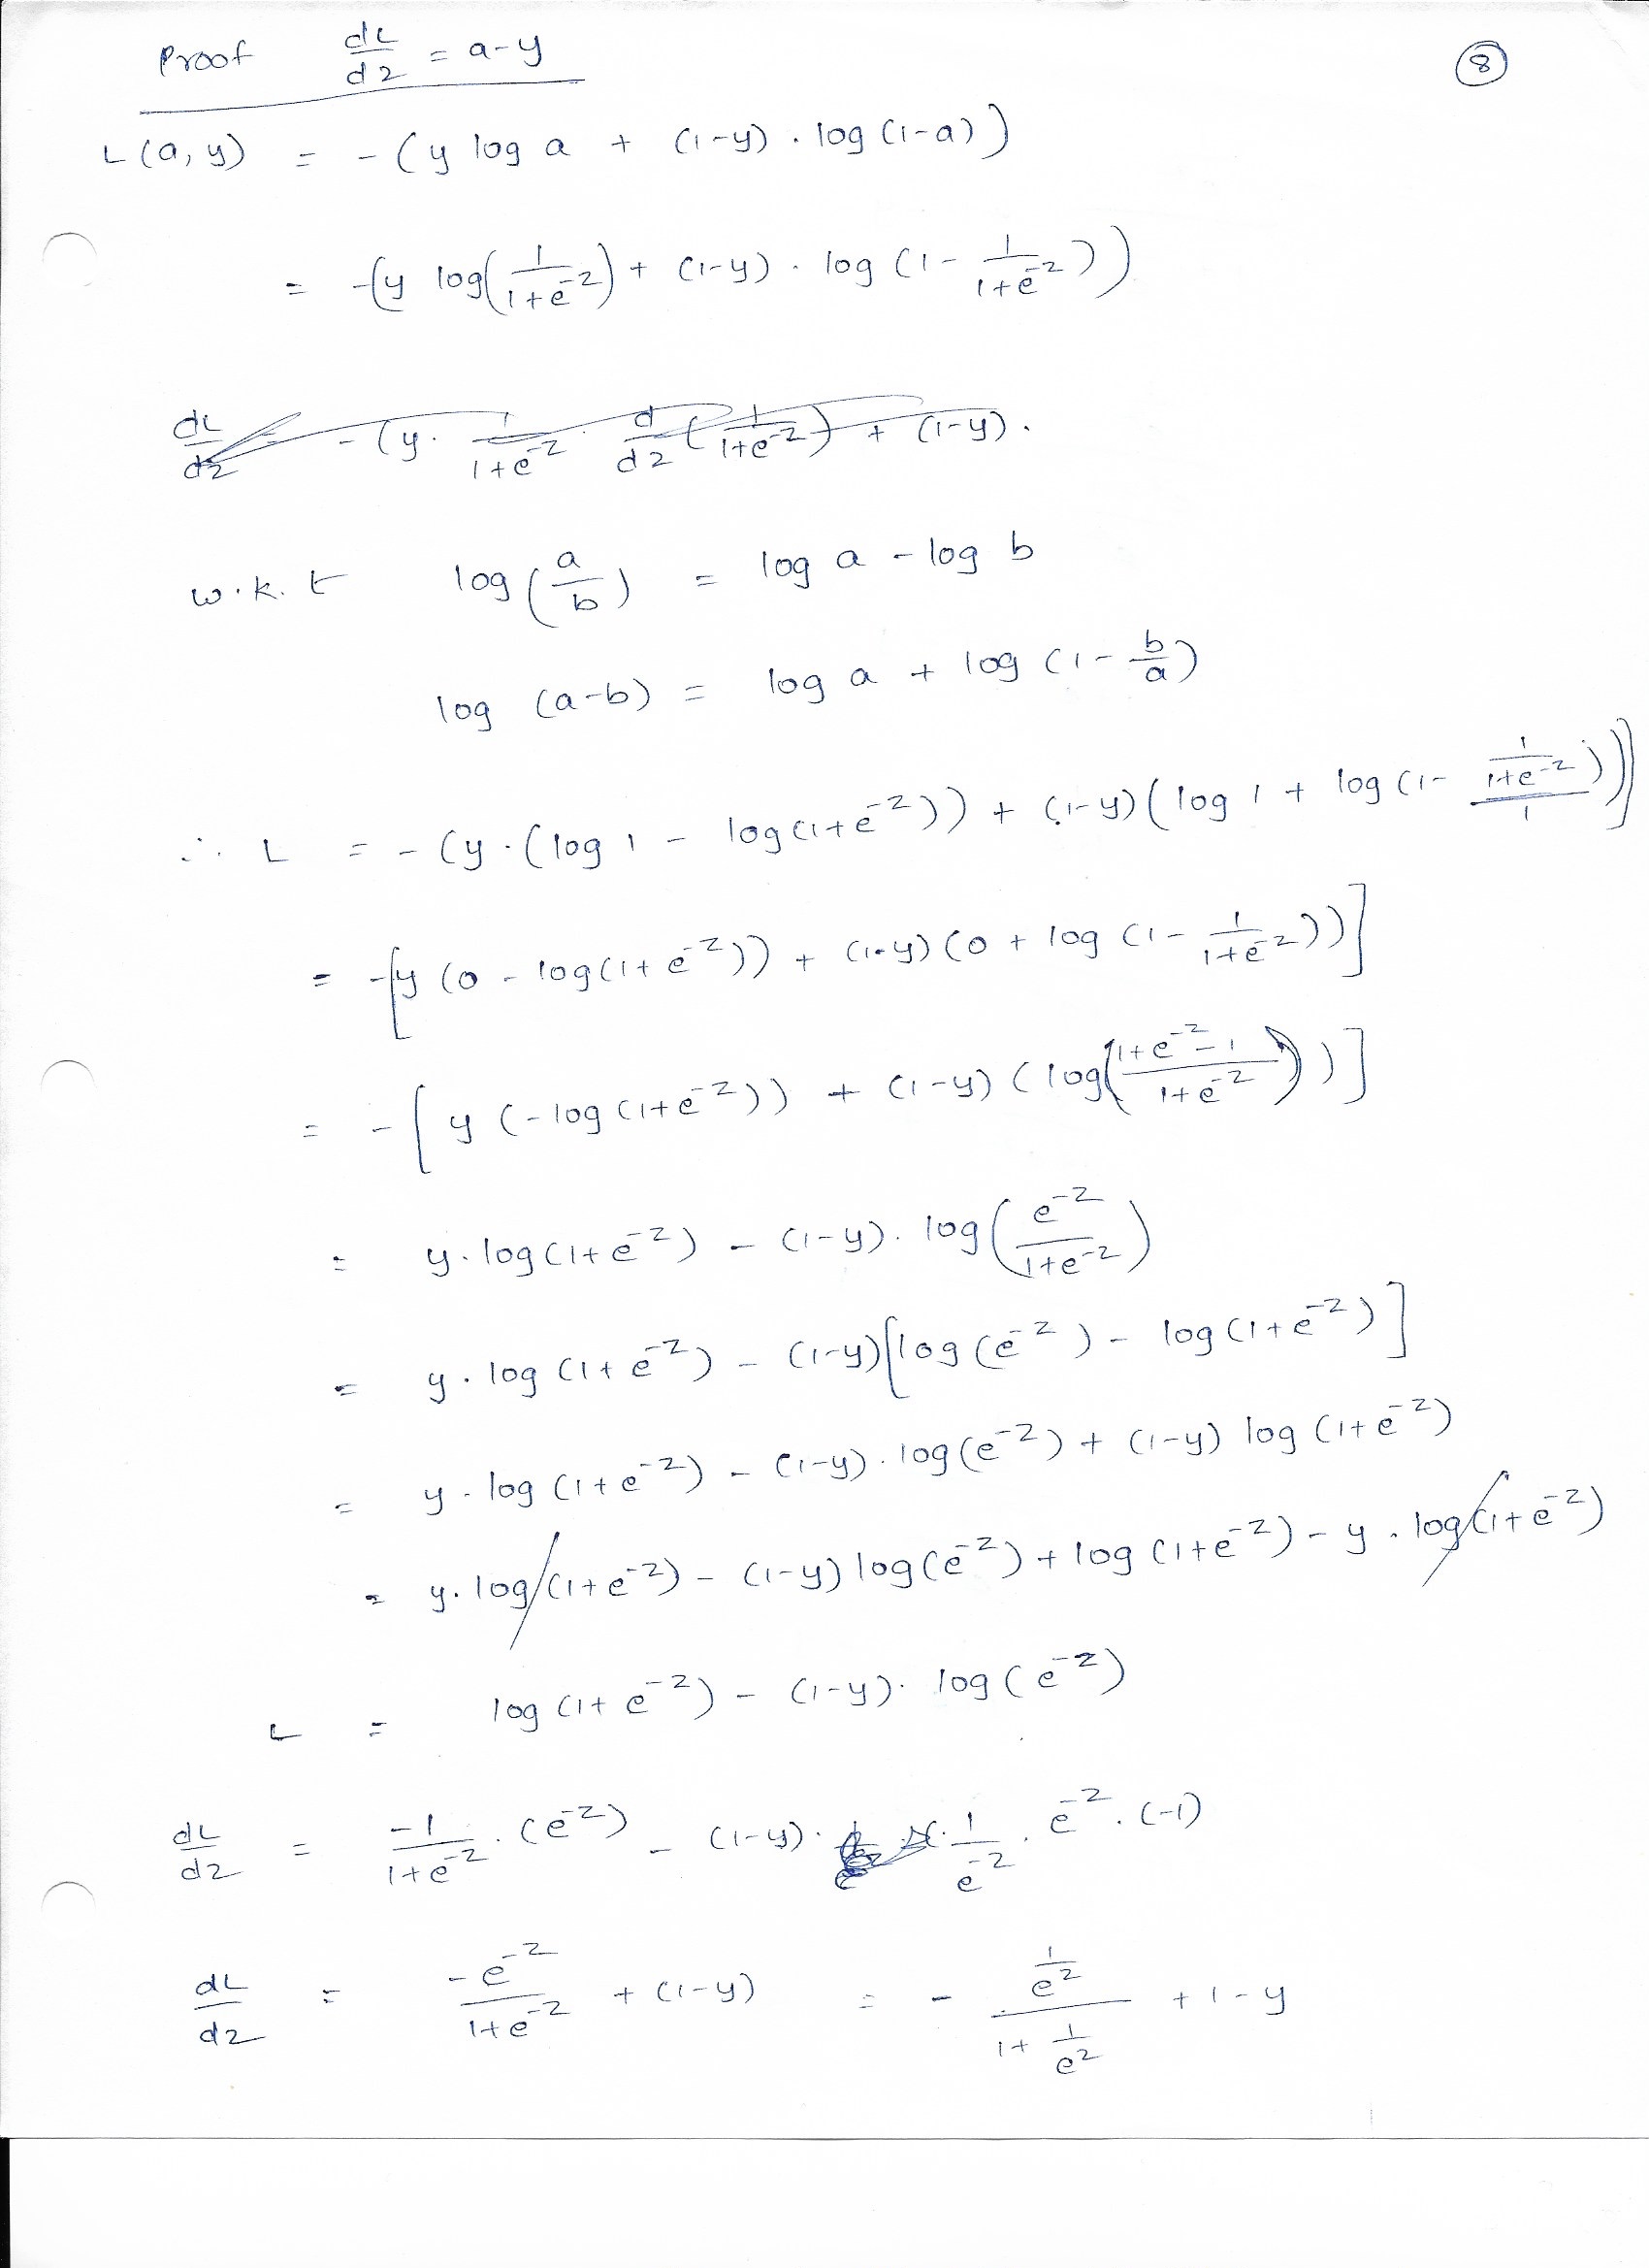 Proof dL/dz = a-y
8
L(a, y) = -(y log a + (1-y) . log (1-a))
= -(y log(1/(1+e^-z)) + (1-y) . log (1 - 1/(1+e^-z)))
dL/dz = -(y . 1/(1+e^-z) . d/dz (1/(1+e^-z)) + (1-y) .
w.k.t log(a/b) = log a - log b
log (a-b) = log a + log (1 - b/a)
∴ L = -(y.(log 1 - log(1+e^-z)) + (1-y)(log 1 + log (1 - (1/(1+e^-z))/1)))
= -[y (0 - log(1+e^-z)) + (1-y)(0 + log (1 - 1/(1+e^-z)))]
= -[y (-log(1+e^-z)) + (1-y) (log((1+e^-z-1)/(1+e^-z)))]
= y.log(1+e^-z) - (1-y). log(e^-z/(1+e^-z))
= y.log(1+e^-z) - (1-y)[log(e^-z) - log(1+e^-z)]
= y.log(1+e^-z) - (1-y).log(e^-z) + (1-y) log(1+e^-z)
= y.log(1+e^-z) - (1-y) log(e^-z) + log(1+e^-z) - y.log(1+e^-z)
L = log(1+e^-z) - (1-y). log(e^-z)
dL/dz = -1/(1+e^-z) . (e^-z) - (1-y) . 1/e^-z . e^-z . (-1)
dL/dz = -e^-z/(1+e^-z) + (1-y) = - (1/e^z)/(1 + 1/e^z) + 1-y